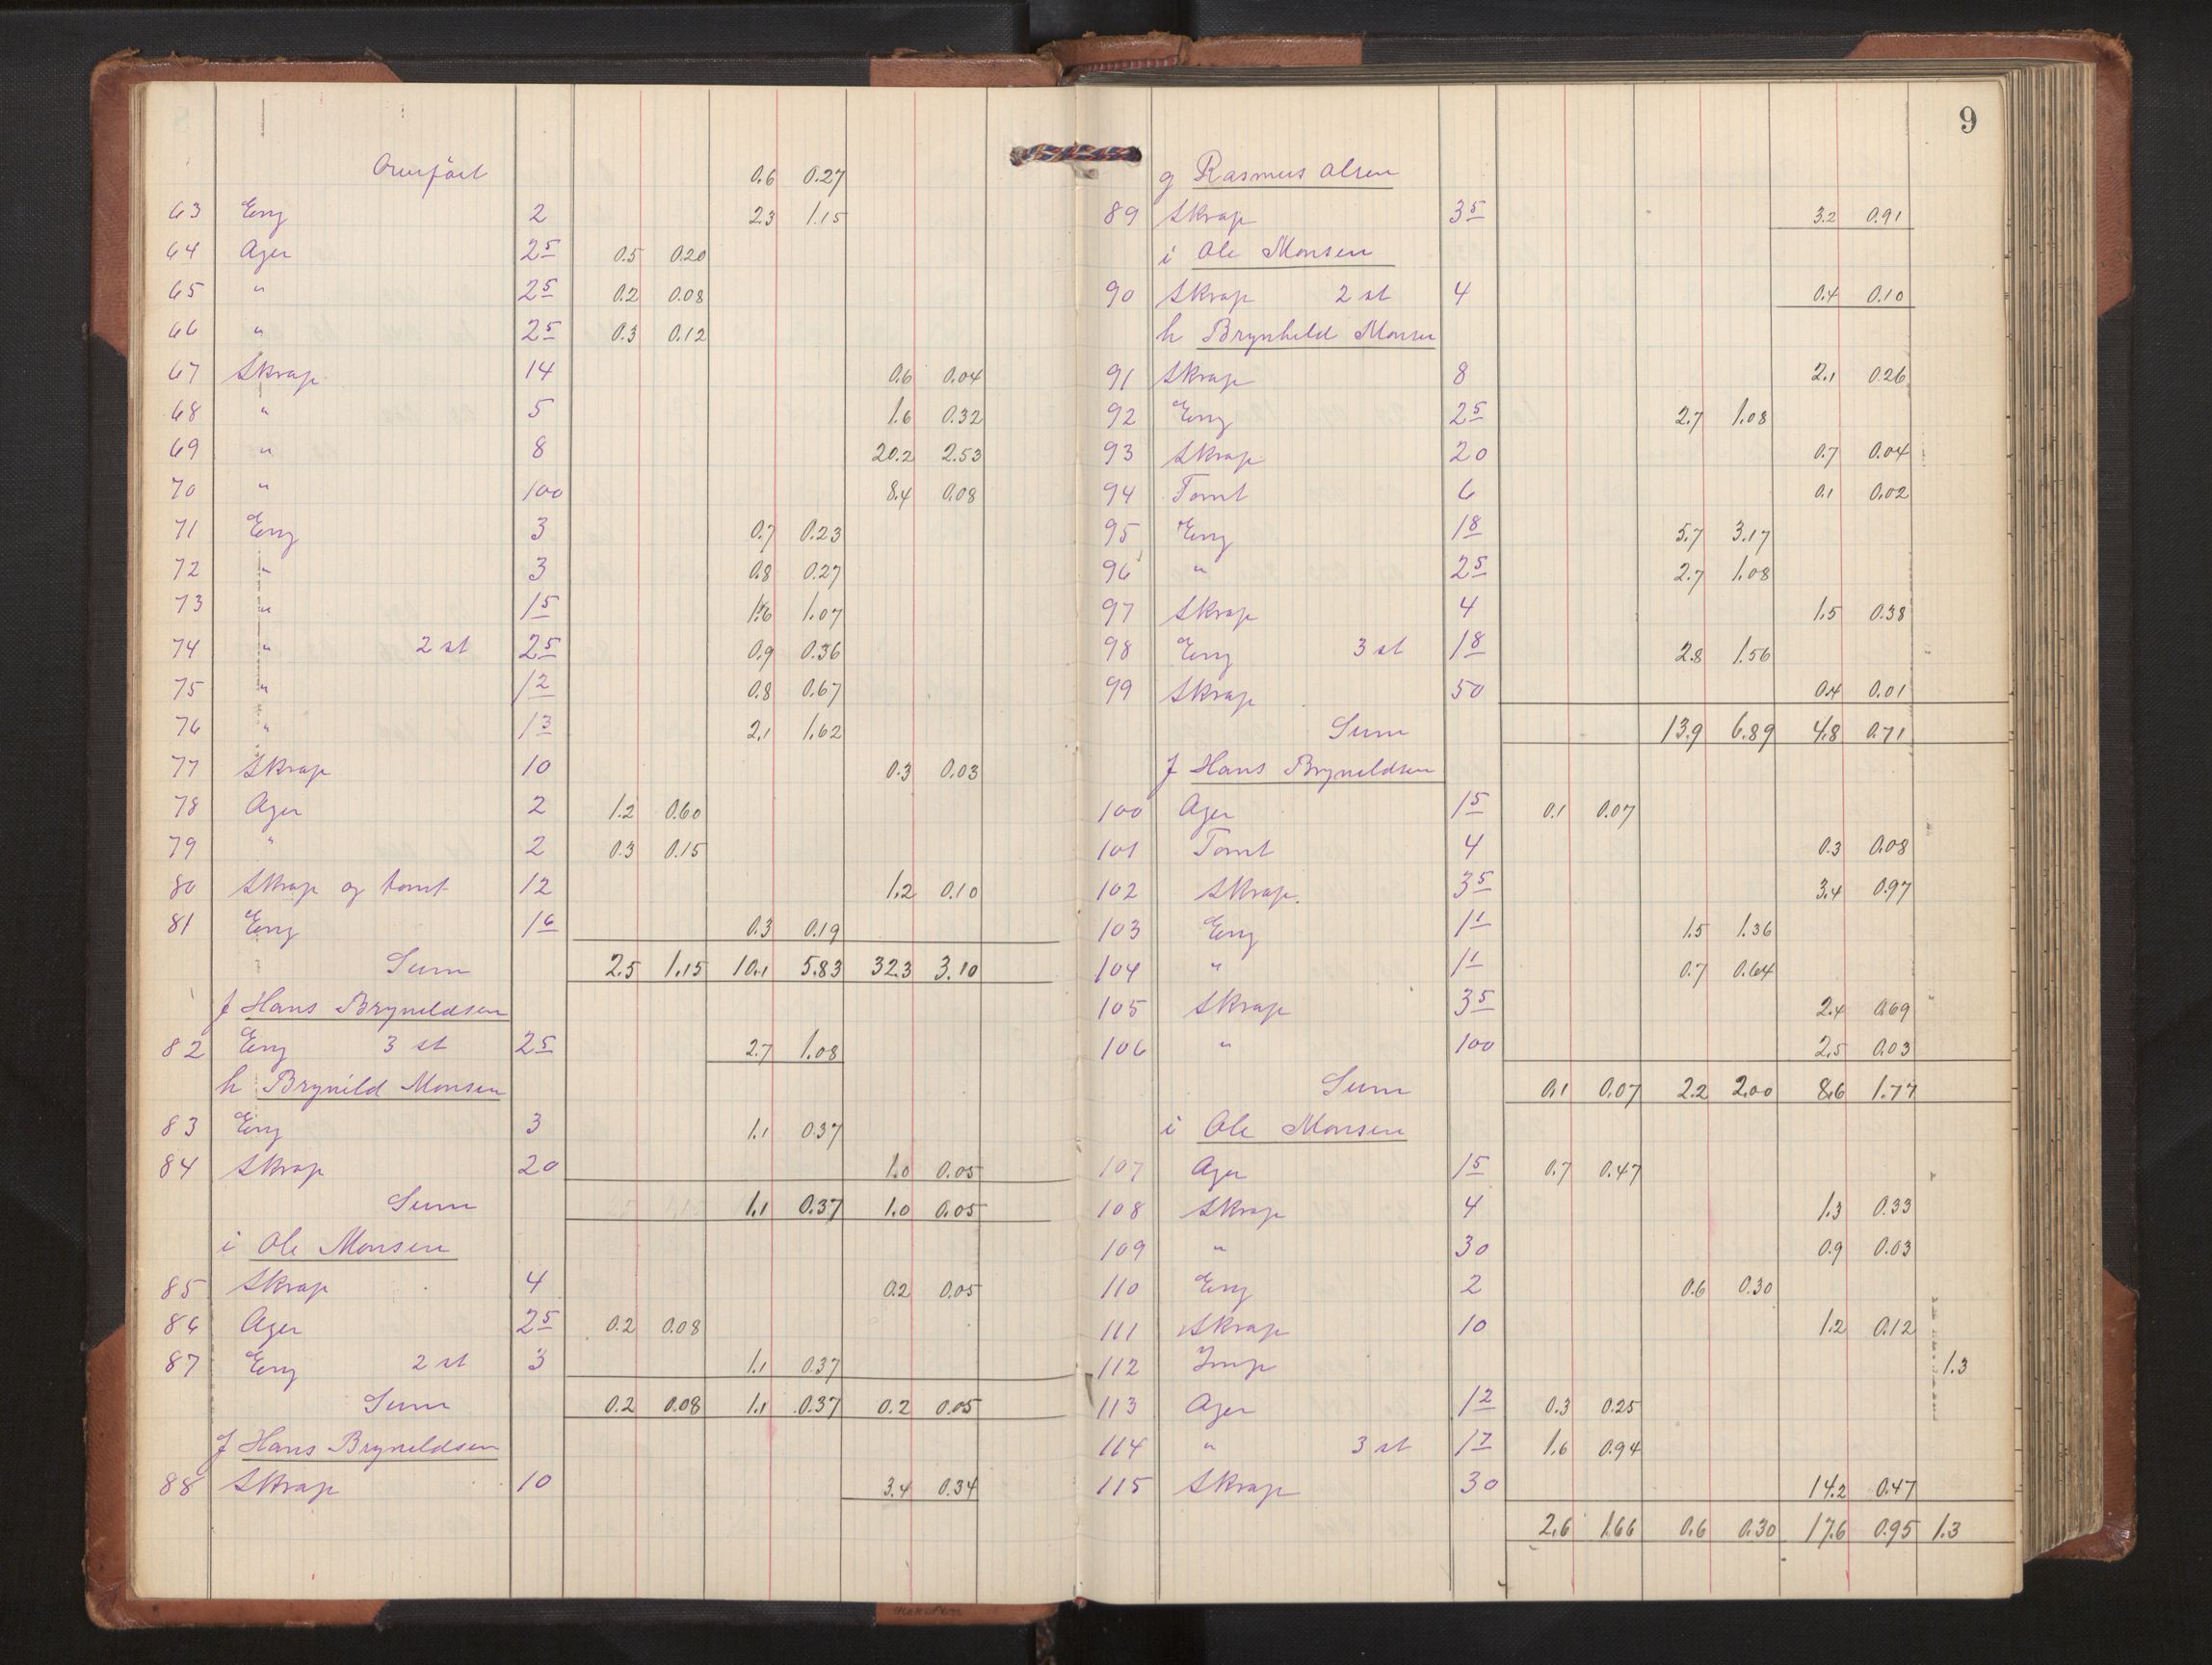 Overført 0.6 0.27
63 Eng 2 2.3 1.15
64 Ager 2 5 0.5 0.20
65 " 2 5 0.2 0.08
66 " 2 5 0.3 0.12
67 Skrap 14 0.6 0.04
68 " 5 1.6 0.32
69 " 8 20.2 2.53
70 " 100 8.4 0.08
71 Eng 3 0.7 0.23
72 " 3 0.8 0.27
73 " 1 5 1.6 1.07
74 " 2 st 2 5 0.9 0.36
75 " 1 2 0.8 0.67
76 " 1 3 2.1 1.62
77 Skrap 10 0.3 0.03
78 Ager 2 1.2 0.60
79 " 2 0.3 0.15
80 Skrap og tomt 12 1.2 0.10
81 Eng 1 6 0.3 0.19
Sum 2.5 1.15 10.1 5.83 32.3 3.10
f Hans Bryneldsen
82 Eng 3 st 2 5 2.7 1.08
h Brynild Monsen
83 Eng 3 1.1 0.37
84 Skrap 20 1.0 0.05
Sum 1.1 0.37 1.0 0.05
i Ole Monsen
85 Skrap 4 0.2 0.05
86 Ager 2 5 0.2 0.08
87 Eng 2 st 3 1.1 0.37
Sum 0.2 0.08 1.1 0.37 0.2 0.05
f Hans Bryneldsen
88 Skrap 10 3.4 0.34
9
g Rasmus Olsen
89 Skrap 3 5 3.2 0.91
i Ole Monsen
90 Skrap 2 st 4 0.4 0.10
h Brynheld Monsen
91 Skrap 8 2.1 0.26
92 Eng 2 5 2.7 1.08
93 Skrap 20 0.7 0.04
94 Tomt 6 0.1 0.02
95 Eng 1 8 5.7 3.17
96 " 2 5 2.7 1.08
97 Skrap 4 1.5 0.38
98 Eng 3 st 1 8 2.8 1.56
99 Skrap 50 0.4 0.01
Sum 13.9 6.89 4.8 0.71
f Hans Bryneldsen
100 Ager 1 5 0.1 0.07
101 Tomt 4 0.3 0.08
102 Skrap. 3 5 3.4 0.97
103 Eng 1 1 1.5 1.36
104 " 1 1 0.7 0.64
105 Skrap 3 5 2.4 0.69
106 " 100 2.5 0.03
Sum 0.1 0.07 2.2 2.00 8.6 1.77
i Ole Monsen
107 Ager 1 5 0.7 0.47
108 Skrap 4 1.3 0.33
109 " 30 0.9 0.03
110 Eng 2 0.6 0.30
111 Skrap 10 1.2 0.12
112 Imp 1.3
113 Ager 1 2 0.3 0.25
114 " 3 st 1 7 1.6 0.94
115 Skrap 30 14.2 0.47
2.6 1.66 0.6 0.30 17.6 0.95 1.3